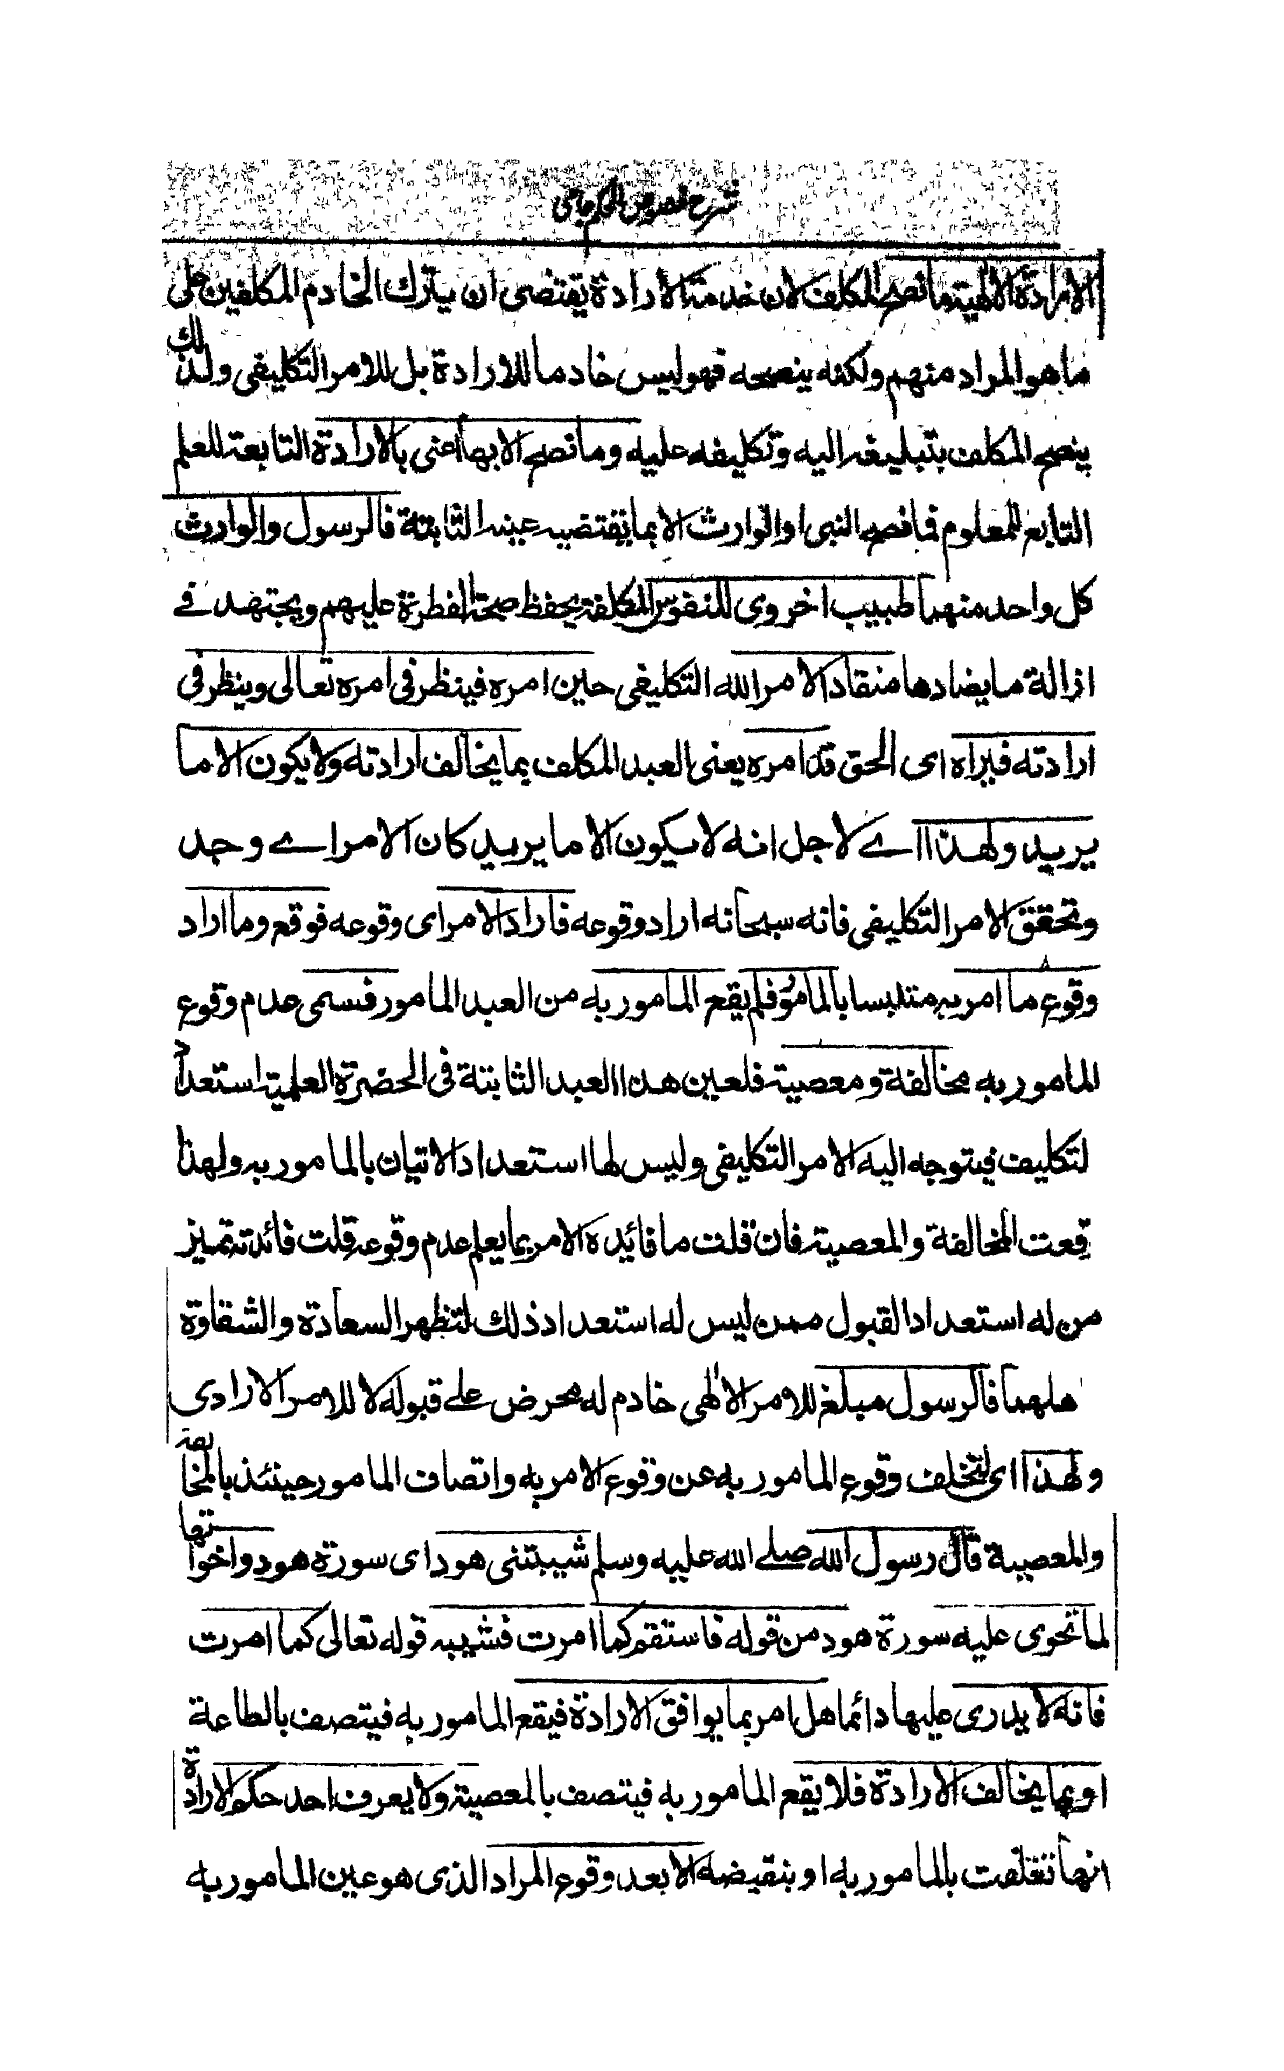 شرح فصوص الحكم جامی
الارادة الالهية ما نصح المكلف لان خدمة الارادة يقتضى ان يترك الخادم المكلفين على
ما هو المراد منهم ولكنه ينصحه فهو ليس خادما للارادة بل للامر التكليفى ولذلك
ينصح المكلف بتبليغه اليه وتكليفه عليه وما نصح الا بها اعنى بالارادة التابعة للعلم
التابع للمعلوم فما نصح النبى او الوارث الا بما يقتضيه عينه الثابتة فالرسول والوارث
كل واحد منهما طبيب اخروى للنفوس المكلفة يحفظ صحة الفطرة عليهم ويجتهد فے
ازالة ما يضادها منقاد الامر الله التكليفى حين امره فينظر فى امره تعالى وينظر فى
ارادته فيراه اى الحق قد امره يعنى العبد المكلف بما يخالف ارادته ولا يكون الا ما
يريد ولهذا اے لاجل انه لا يكون الا ما يريد كان الامر اے وجد
وتحقق الامر التكليفى فانه سبحانه اراد وقوعه فاراد الامر اى وقوعه فوقع وما اراد
وقوع ما امر به متلبسا بالمامور فلم يقع المامور به من العبد المامور فسمى عدم وقوع
المامور به مخالفة ومعصية فلعين هذا العبد الثابتة فى الحضرة العلمية استعداد
لتكليف فيتوجه اليه الامر التكليفى وليس لها استعداد الاتيان بالمامور به ولهذا
قعت المخالفة والمعصية فان قلت ما فائدة الامر بما يعلم عدم وقوعه قلت فائدته تميز
من له استعداد القبول ممن ليس له استعداد ذلك لتظهر السعادة والشقاوة
هلهما فالرسول مبلغ للامر الالٰهى خادم له محرض علے قبوله لا للامر الارادى
ولهذا اى لتخلف وقوع المامور به عن وقوع الامر به واتصاف المامور حينئذ بالمخالفة
والمعصية قال رسول الله صلے الله عليه وسلم شيبتنى هود اى سورة هود واخواتها
لما تحوى عليه سورة هود من قوله فاستقم كما امرت فشيبه قوله تعالى كما امرت
فانه لا يدرى عليها دائما هل امر بما يوافق الارادة فيقع المامور به فيتصف بالطاعة
او بما يخالف الارادة فلا يقع المامور به فيتصف بالمعصية ولا يعرف احد حكم الارادة
انها تعلقت بالمامور به او بنقيضه الا بعد وقوع المراد الذى هو عين المامور به